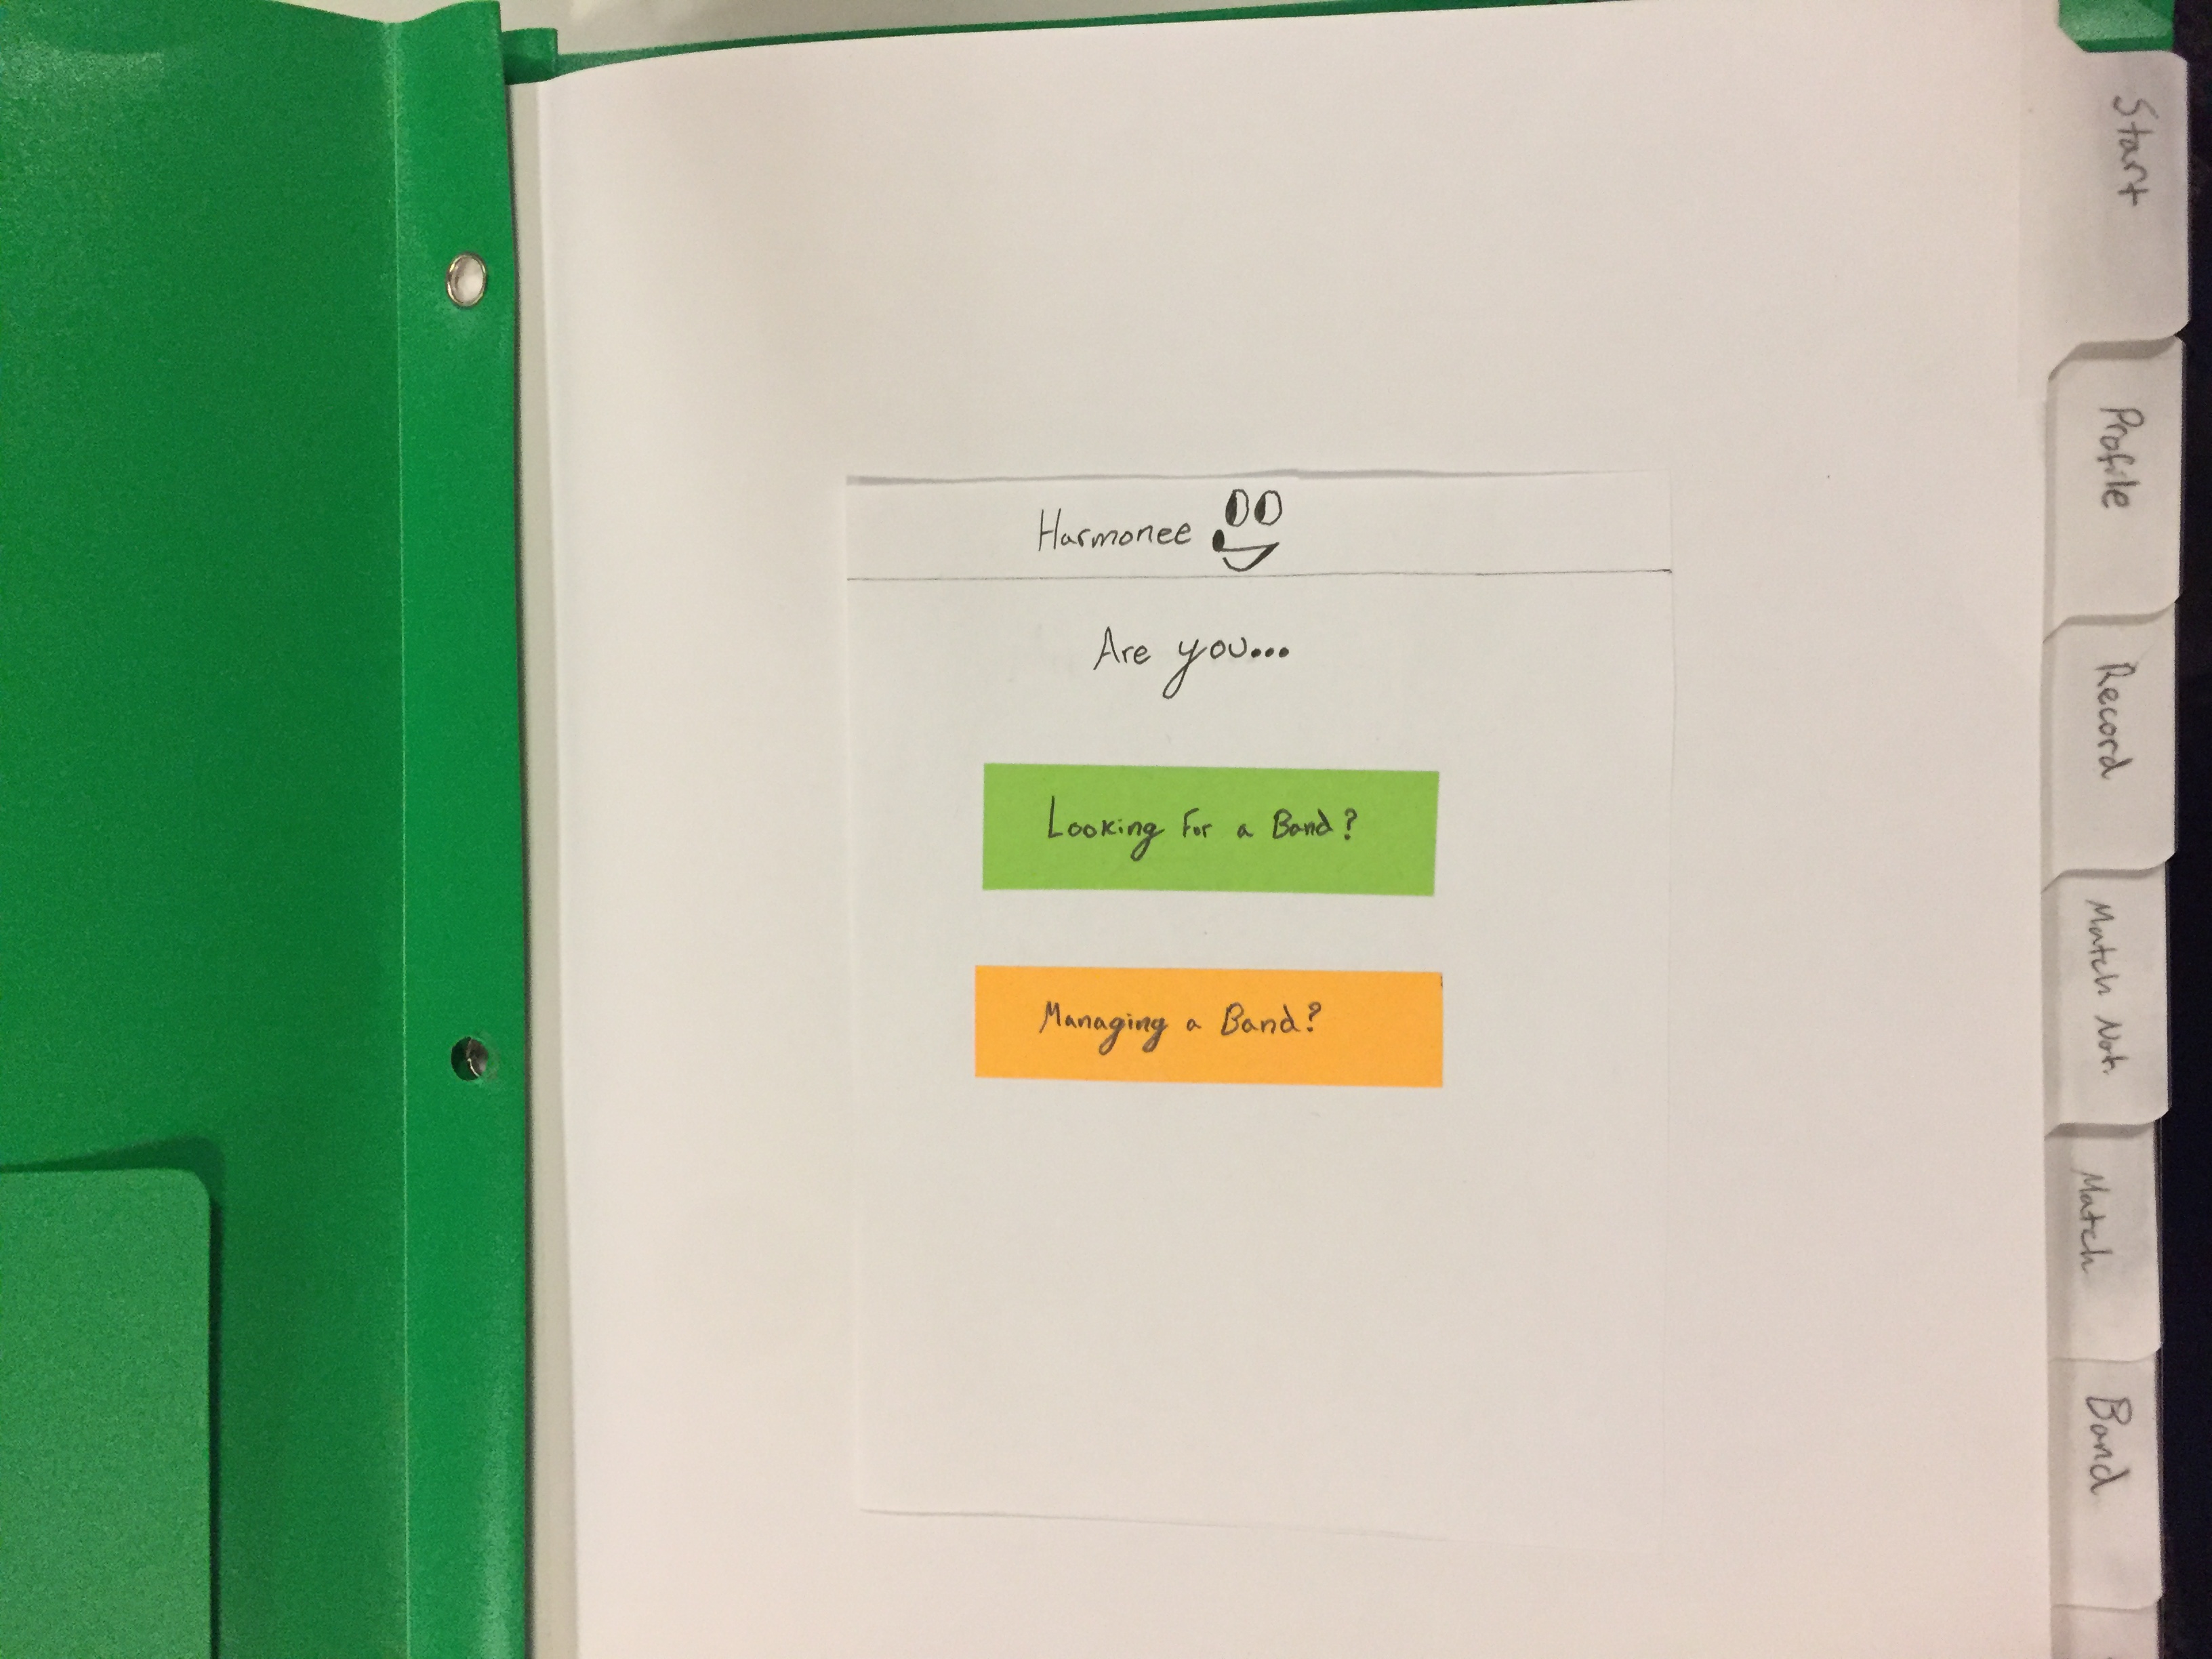 Harmonee
Are you...
Looking for a Band?
Managing a Band?
Start
Profile
Record
Match Not.
Match
Band